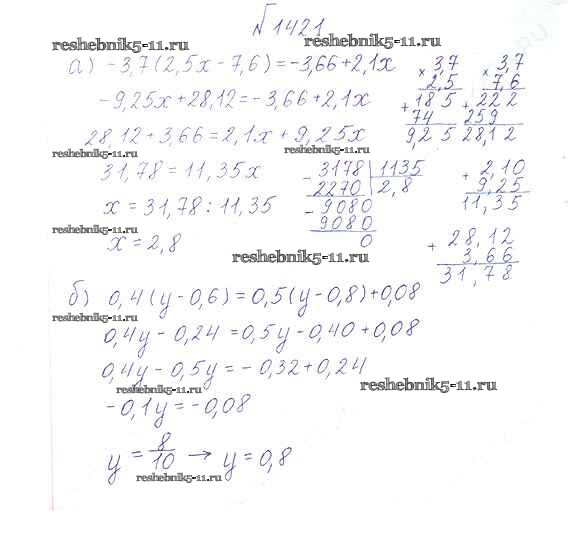 №1421
reshebnik5-11.ru
а) -3,7(2,5x-7,6)=-3,66+2,1x
-9,25x+28,12=-3,66+2,1x
28,12+3,66=2,1x+9,25x
reshebnik5-11.ru
31,78=11,35x
x=31,78:11,35
reshebnik5-11.ru
x=2,8
× 3,7
2,5
+ 185
74
9,25
× 3,7
7,6
+ 222
259
28,12
reshebnik5-11.ru
- 3178 | 1135
2270 | 2,8
- 9080
9080
0
+ 2,10
9,25
11,35
reshebnik5-11.ru
+ 28,12
3,66
31,78
б) 0,4(y-0,6)=0,5(y-0,8)+0,08
reshebnik5-11.ru
0,4y-0,24=0,5y-0,40+0,08
0,4y-0,5y=-0,32+0,24
reshebnik5-11.ru
reshebnik5-11.ru
-0,1y=-0,08
y=8/10 → y=0,8
reshebnik5-11.ru